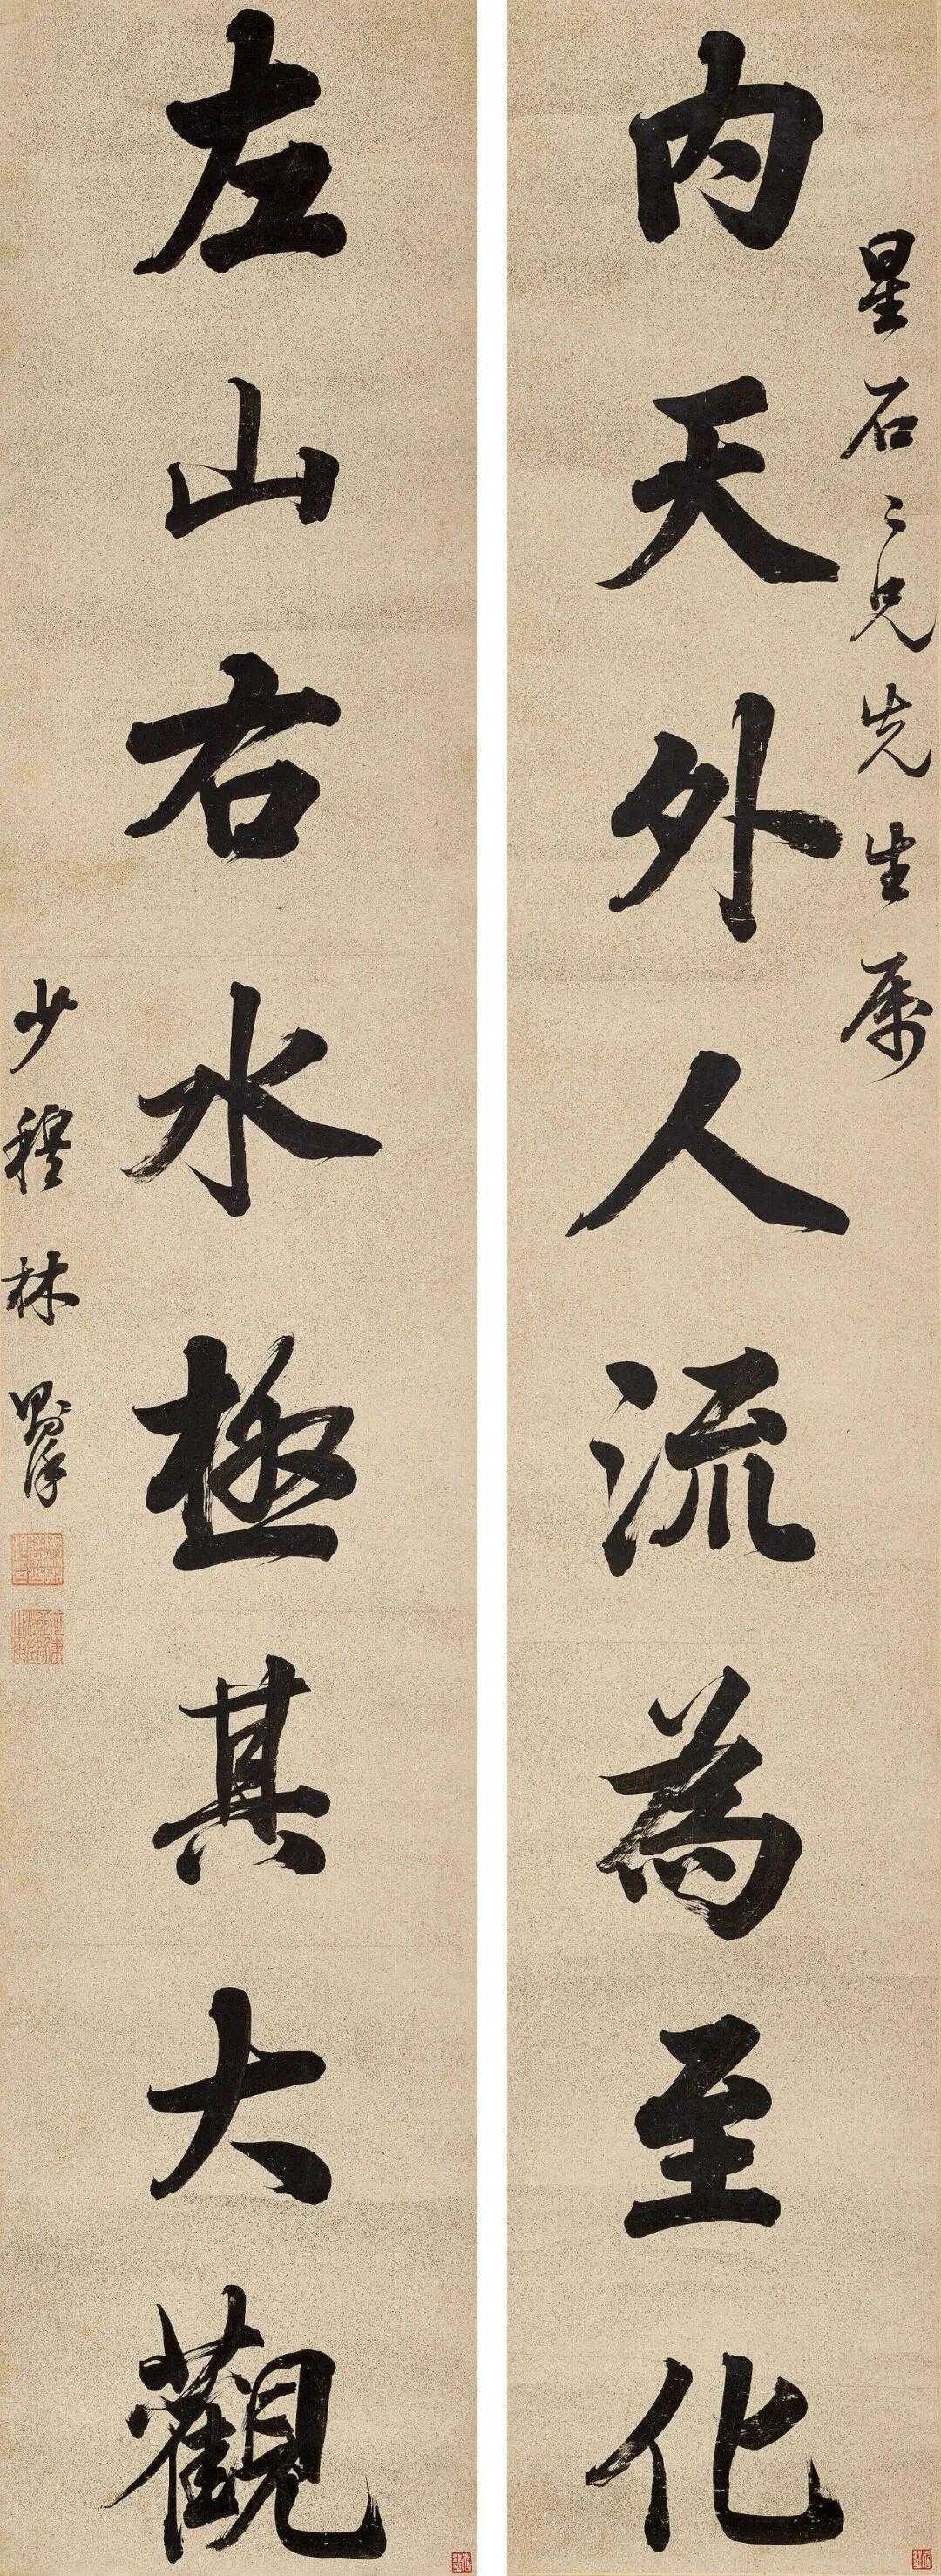 星石二兄先生属
内天外人流為至化
左山右水極其大觀
少穆林則徐